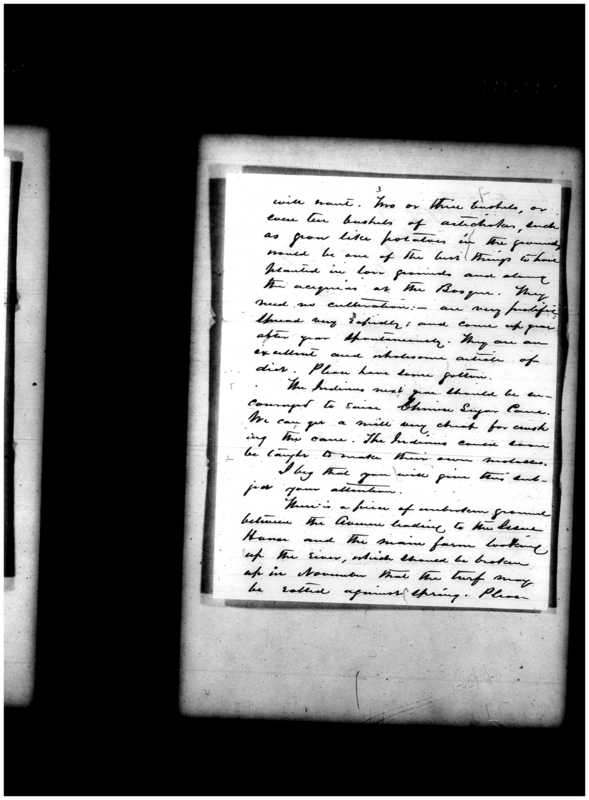 3
will want. Two or three bushels, or
even ten bushels of artichokes, such
as grow like potatoes in the ground,
would be one of the best things to have
planted in low grounds and along
the acequias at the Bosque. They
need no cultivation:– are very prolific,
spread very rapidly; and come up year
after year spontaneously. They are an
excellent and wholesome article of
diet. Please have some gotten.
The Indians next year should be en-
couraged to raise Chinese Sugar Cane.
We can get a mill very cheap for crush
ing the cane. The Indians could soon
be taught to make their own molasses.
I beg that you will give this sub-
ject your attention.
There is a piece of unbroken ground
between the Avenue leading to the Issue
House and the main farm looking
up the river, which should be broken
up in November that the turf may
be rotted against spring. Please